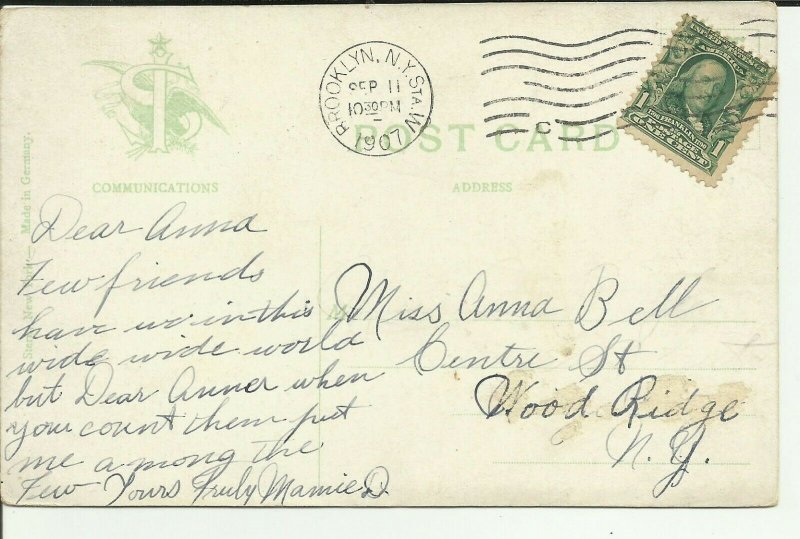 BROOKLYN, N.Y. STA. W
SEP 11
10 30 PM
1907
C
POST CARD
1 FRANKLIN 1
ONE CENT
COMMUNICATIONS
ADDRESS
Made in Germany.
Dear Anna
Few friends
have we in this
wide wide world
but Dear Anner when
you count them put
me among the
Few Yours Truly Mamie D
Miss Anna Bell
Centre St
Wood Ridge
N. Y.